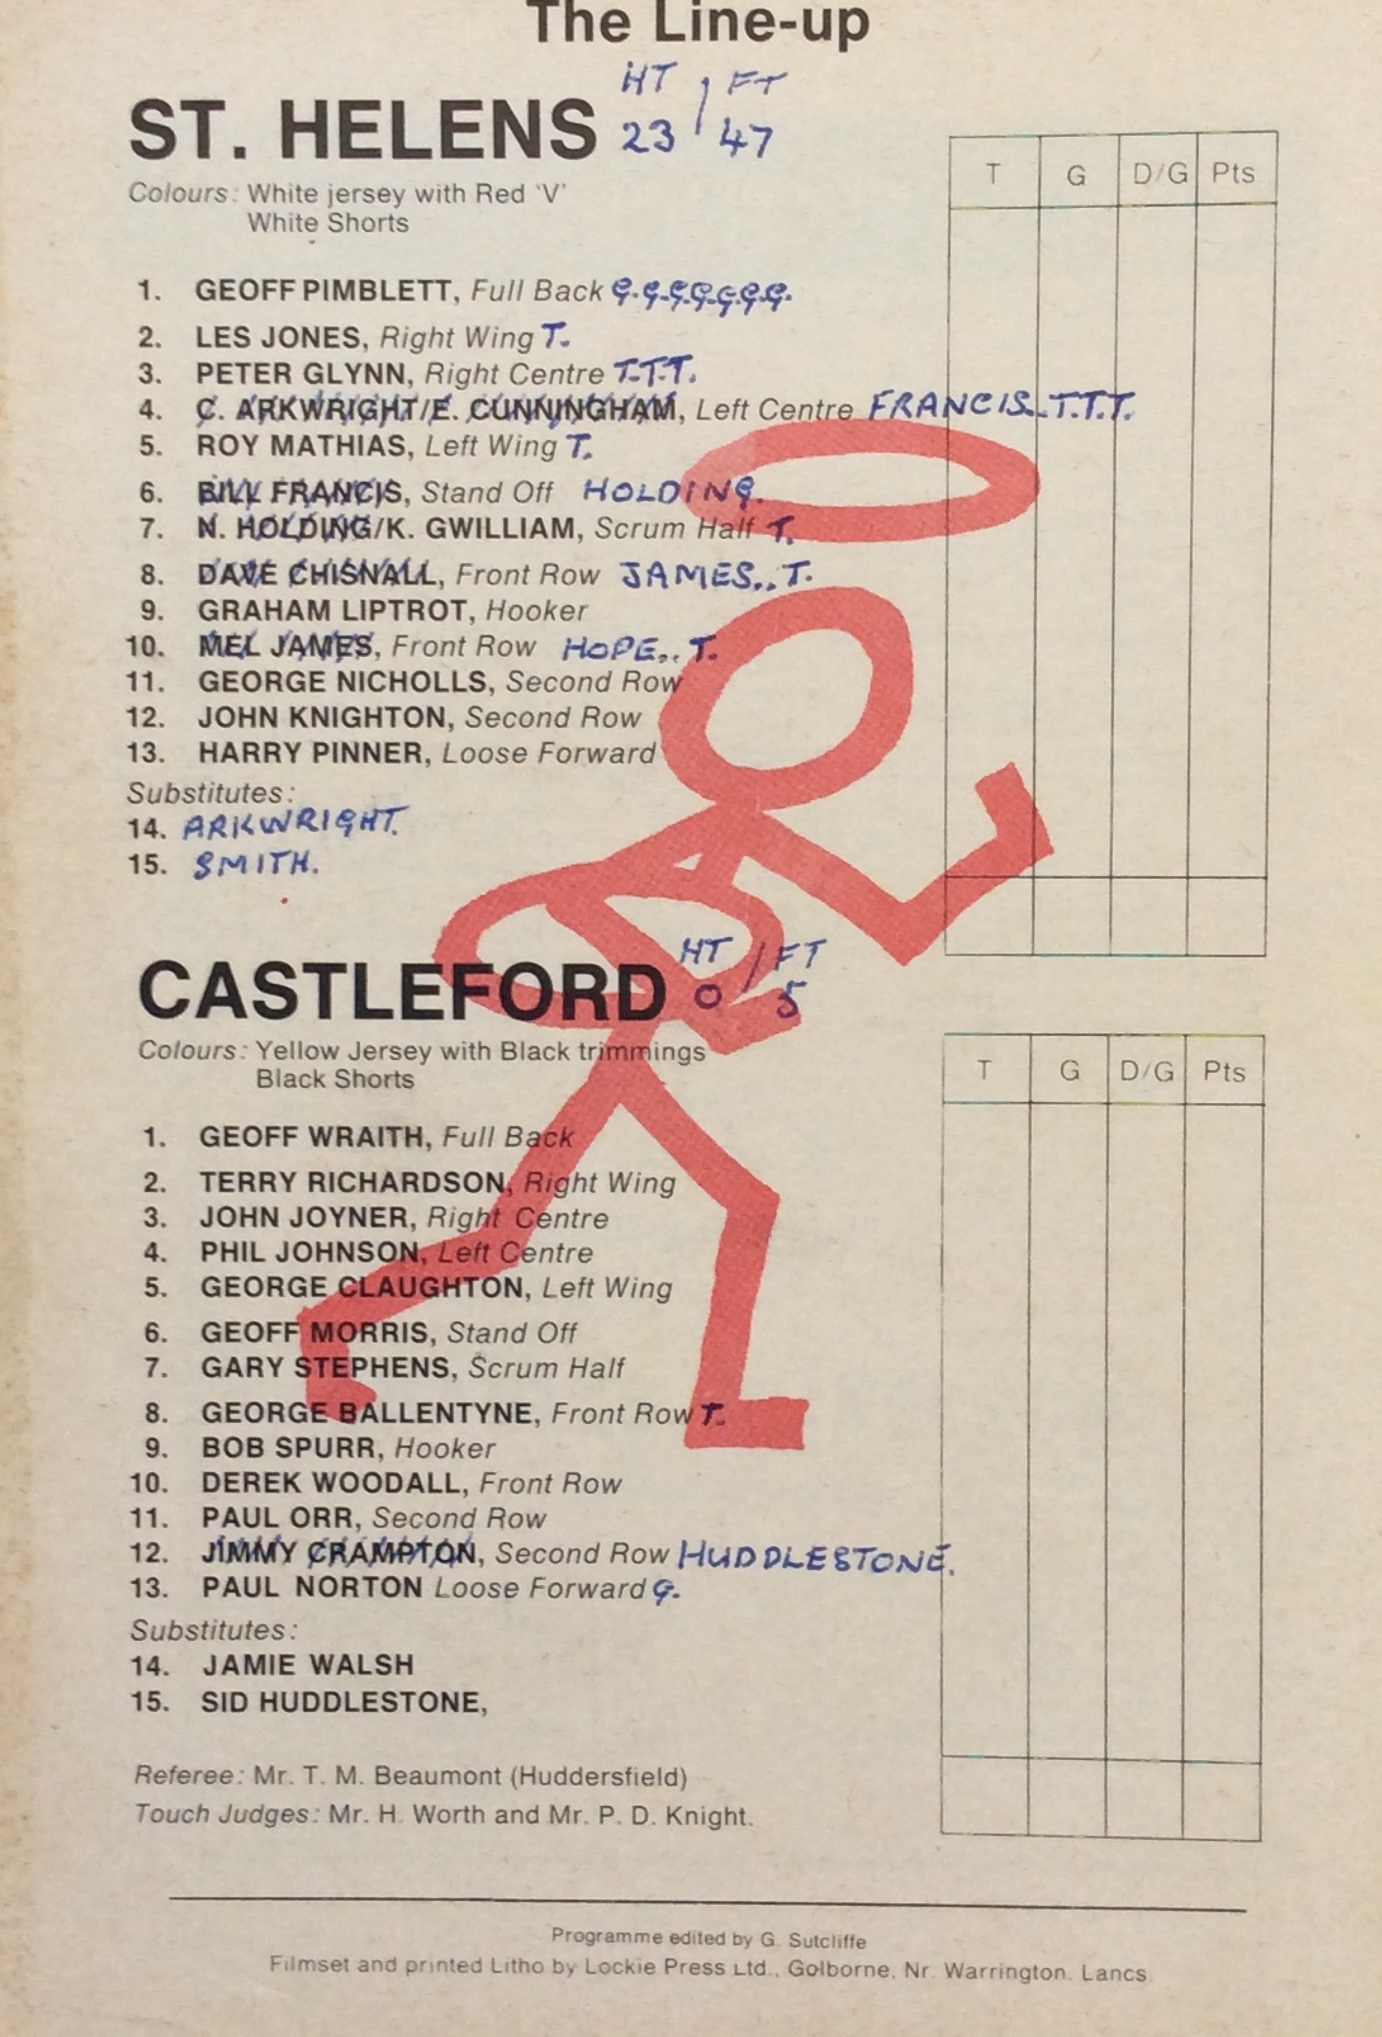 The Line-up
HT / FT
ST. HELENS 23 47
Colours: White jersey with Red 'V'
White Shorts
T G D/G Pts
1. GEOFF PIMBLETT, Full Back G.G.G.G.G.G.G.
2. LES JONES, Right Wing T.
3. PETER GLYNN, Right Centre T.T.T.
4. C. ARKWRIGHT/E. CUNNINGHAM, Left Centre FRANCIS..T.T.T.
5. ROY MATHIAS, Left Wing T.
6. BILL FRANCIS, Stand Off HOLDING.
7. N. HOLDING/K. GWILLIAM, Scrum Half T.
8. DAVE CHISNALL, Front Row JAMES..T.
9. GRAHAM LIPTROT, Hooker
10. MEL JAMES, Front Row HOPE.. T.
11. GEORGE NICHOLLS, Second Row
12. JOHN KNIGHTON, Second Row
13. HARRY PINNER, Loose Forward
Substitutes:
14. ARKWRIGHT.
15. SMITH.
HT / FT
CASTLEFORD 0 5
Colours: Yellow Jersey with Black trimmings
Black Shorts
T G D/G Pts
1. GEOFF WRAITH, Full Back
2. TERRY RICHARDSON, Right Wing
3. JOHN JOYNER, Right Centre
4. PHIL JOHNSON, Left Centre
5. GEORGE CLAUGHTON, Left Wing
6. GEOFF MORRIS, Stand Off
7. GARY STEPHENS, Scrum Half
8. GEORGE BALLENTYNE, Front Row T.
9. BOB SPURR, Hooker
10. DEREK WOODALL, Front Row
11. PAUL ORR, Second Row
12. JIMMY CRAMPTON, Second Row HUDDLESTONE.
13. PAUL NORTON Loose Forward G.
Substitutes:
14. JAMIE WALSH
15. SID HUDDLESTONE,
Referee: Mr. T. M. Beaumont (Huddersfield)
Touch Judges: Mr. H. Worth and Mr. P. D. Knight.
Programme edited by G. Sutcliffe
Filmset and printed Litho by Lockie Press Ltd., Golborne, Nr. Warrington. Lancs